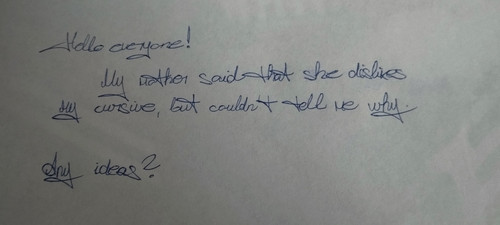 Hello everyone!
My mother said that she dislikes
my cursive, but couldn't tell me why.
Any ideas?